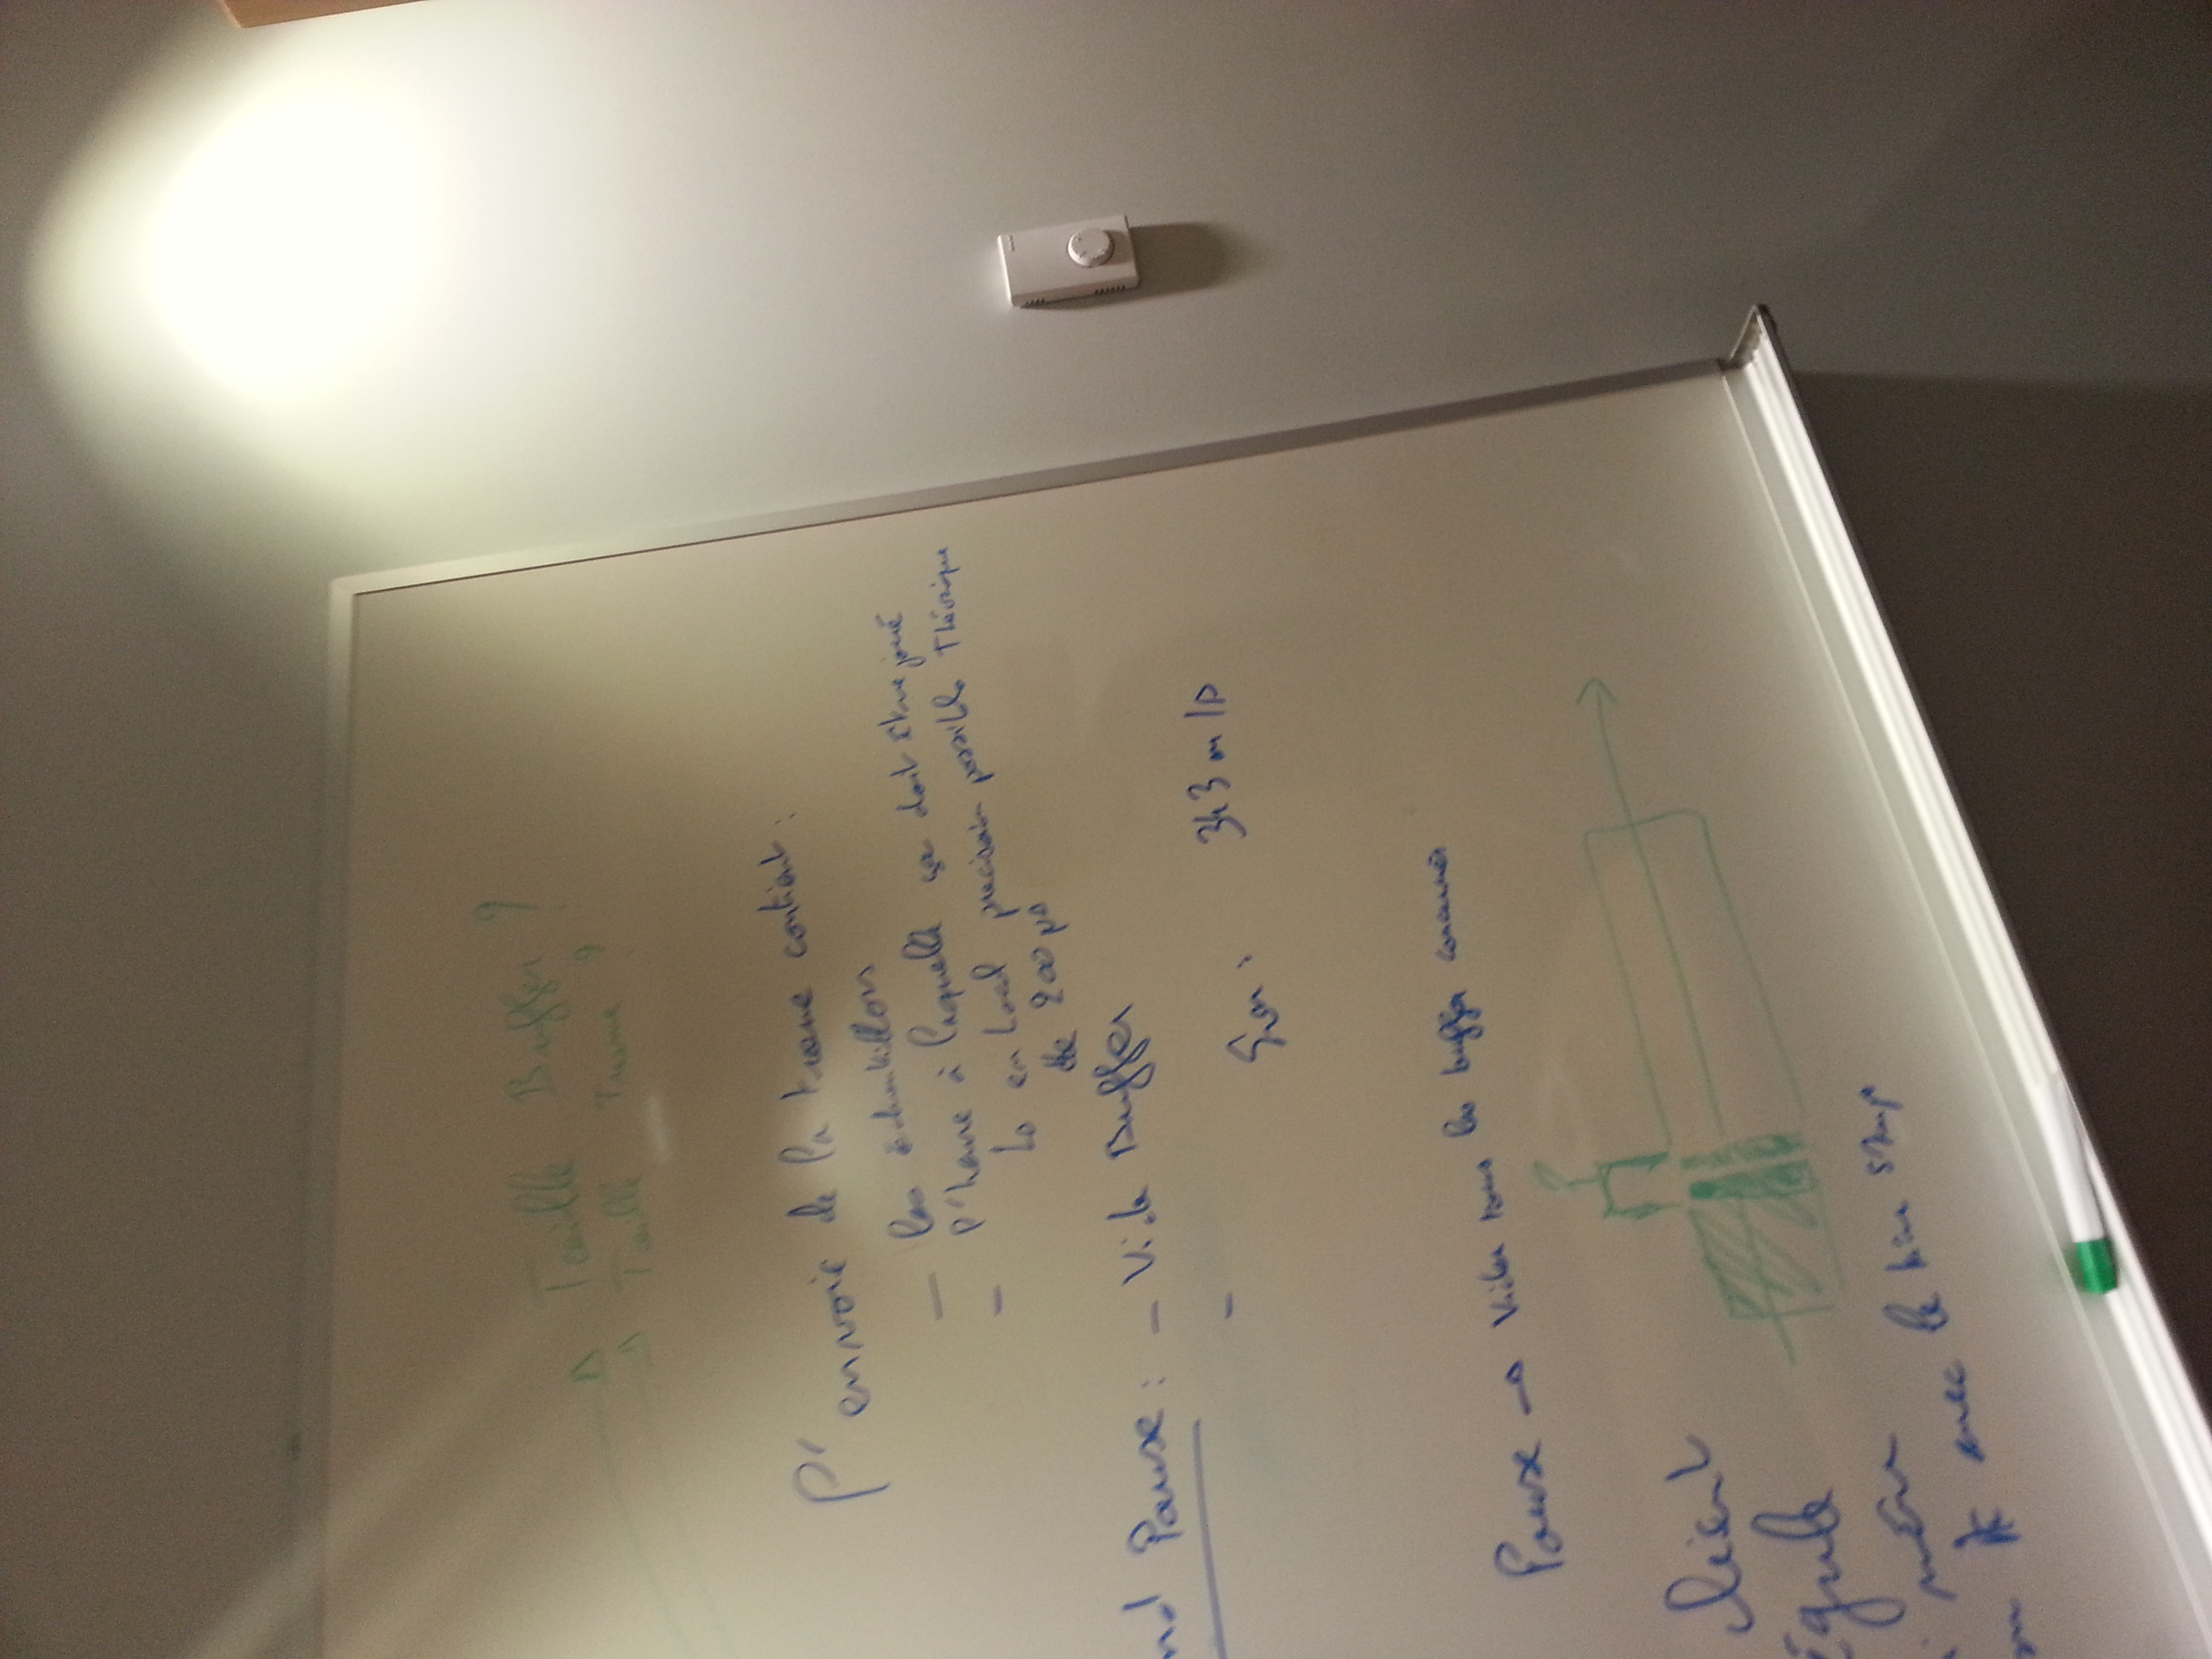 → Taille Buffer ?
→ Taille Trame ?
l'envoie de la trame contient :
– les échantillons
– l'heure à laquelle ça doit être joué
↳ en Local precision possible Théorique
de 200 µs
nd Pause : – Vide Buffer
–
Son : 343 m/s
Pause → Vider tous les buffer concernés
?
client
égule
même
avec le time stamp